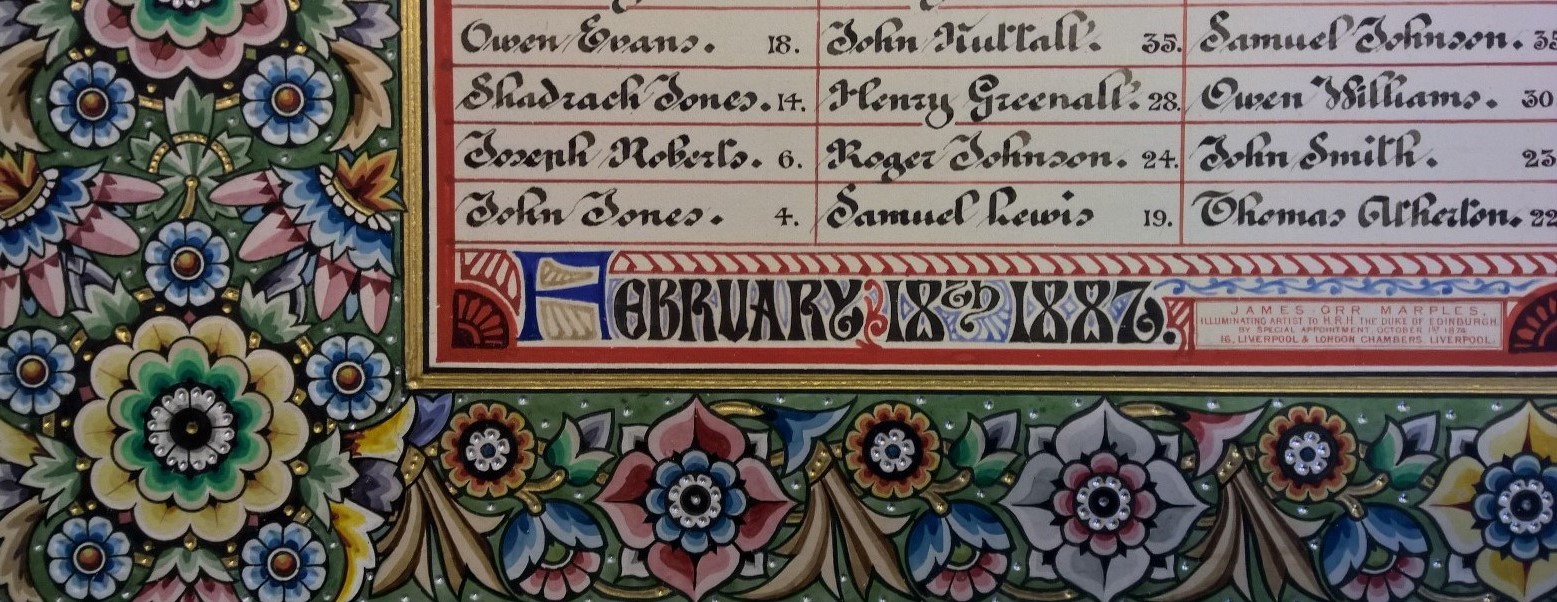 Owen Evans. 18. John Nuttall. 35. Samuel Johnson. 35
Shadrach Jones. 14. Henry Greenall. 28. Owen Williams. 30
Joseph Roberts. 6. Roger Johnson. 24. John Smith. 23
John Jones. 4. Samuel Lewis 19. Thomas Atherton. 22
FEBRUARY 18TH 1887.
JAMES ORR MARPLES,
ILLUMINATING ARTIST TO H.R.H. THE DUKE OF EDINBURGH,
BY SPECIAL APPOINTMENT, OCTOBER 1ST 1874
16, LIVERPOOL & LONDON CHAMBERS, LIVERPOOL.